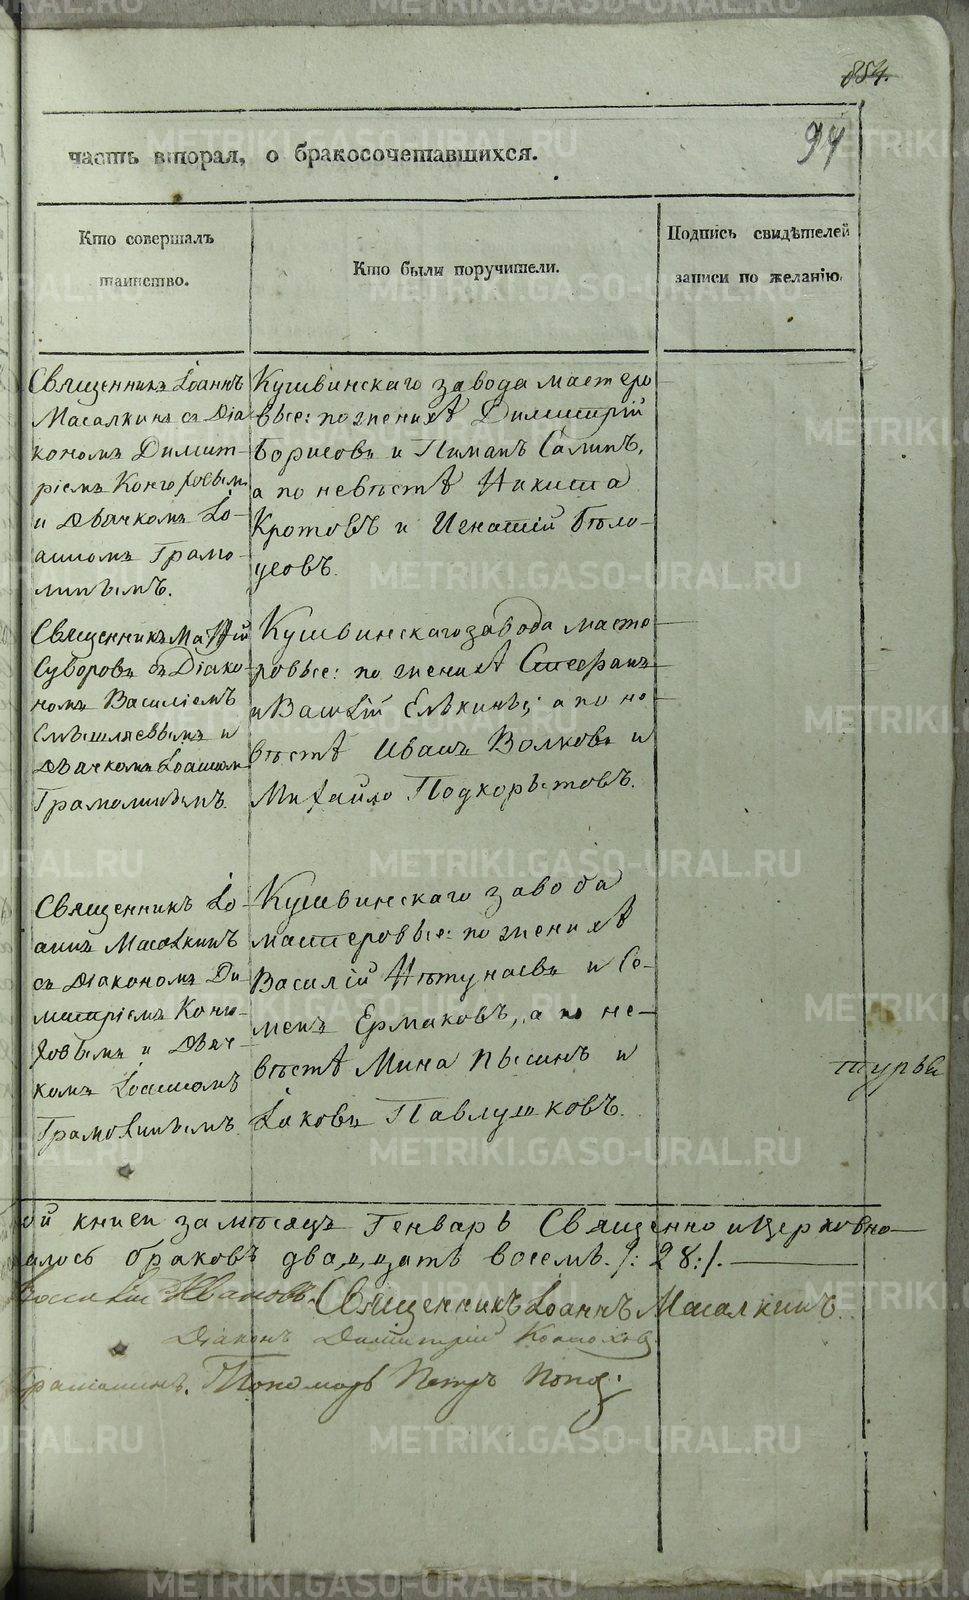 854.
94
часть вторая, о бракосочетавшихся.
Кто совершалъ
таинство.
Кто были поручители.
Подпись свидѣтелей
записи по желанію.
Священникъ Іоаннъ
Масалкинъ съ Діа
кономъ Димит-
ріемъ
и дьячкомъ Іо-
анномъ Грамо-
линымъ.
Кушвинскаго завода мастеро
вые: по женихѣ Димитрій
Борисовъ и Пиманъ Салинъ,
а по невѣстѣ Никита
Кротовъ и Игнатій Бѣло-
усовъ.
Священникъ Матѳій
Суворовъ съ Діако-
номъ Василіемъ
Смышляевымъ и
дьячкомъ Іоанном
Грамолинымъ.
Кушвинскаго завода масте-
ровые: по женихѣ Стефанъ
и Васілій Елькины; а по не-
вѣстѣ Иванъ Волковъ и
Михайло Подкорытовъ.
Священникъ Іо-
аннъ Масалкинъ
съ діакономъ Ди
митріемъ Коню-
ховымъ и дьяч-
комъ Іоанномъ
Грамолинымъ.
Кушвинскаго завода
мастеровые: по женихѣ
Василій и Се-
менъ Ермаковъ, а по не-
вѣстѣ Мина Пысинъ и
Іаковъ Павлушковъ.
турьи
ой книги за мѣсяцъ Генварь Священно и церковно
алось браковъ двадцать восемь. /: 28 :/.
Ивановъ. Священникъ Іоаннъ Масалкинъ.
Діаконъ Димитрій Конюховъ.
Грамолинъ. Пономарь Петръ Попов.
METRIKI.GASO-URAL.RU